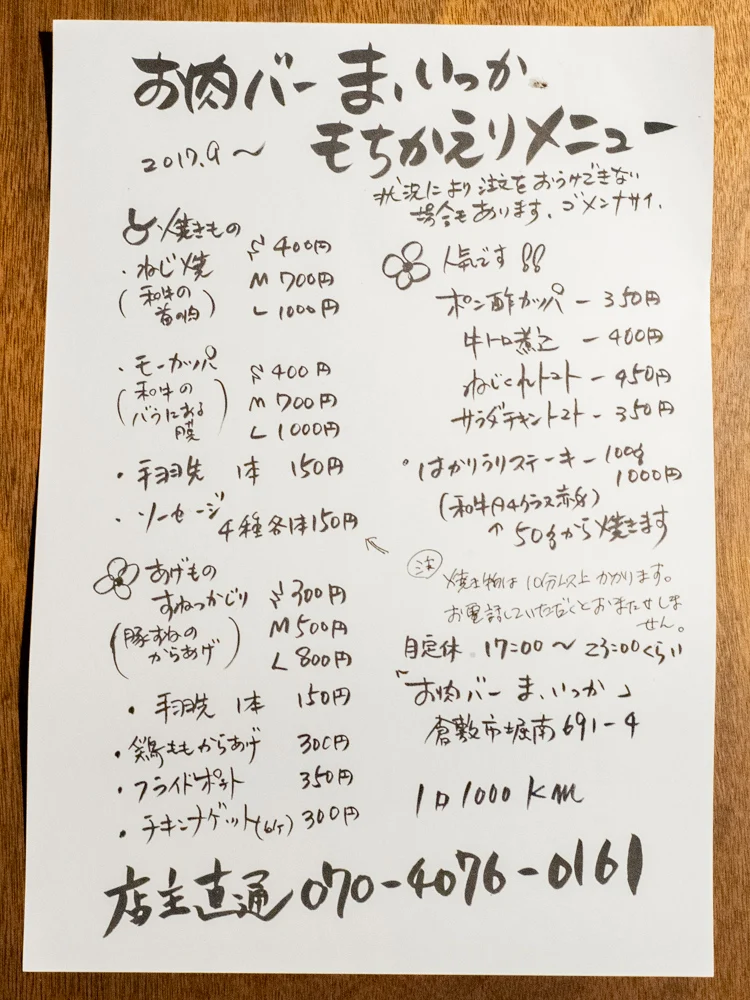 お肉バー ま、いっか
もちかえりメニュー
2017.9～
状況により注文をおうけできない
場合もあります。ゴメンナサイ。
焼きもの
・ねじ焼 S 400円
(和牛の首の肉) M 700円
L 1000円
・モーカッパ S 400円
(和牛のバラにある膜) M 700円
L 1000円
・手羽先 1本 150円
・ソーセージ 4種各1本150円
あげもの
すねっかじり S 300円
(豚すねのからあげ) M 500円
L 800円
・手羽先 1本 150円
・鶏ももからあげ 300円
・フライドポテト 350円
・チキンナゲット(6ケ) 300円
人気です!!
ポン酢カッパ ー 350円
牛トロ煮込 ー 400円
ねじくれトマト ー 450円
サラダチキントマト ー 350円
・はかりうりステーキ ー 100g
1000円
(和牛A4クラス赤身)
↑ 50gから焼きます
注 焼き物は10分以上かかります。
お電話していただくとおまたせしま
せん。
月定休 17:00～23:00くらい
「お肉バー ま、いっか」
倉敷市堀南691-4
1日1000km
店主直通 070-4076-0161